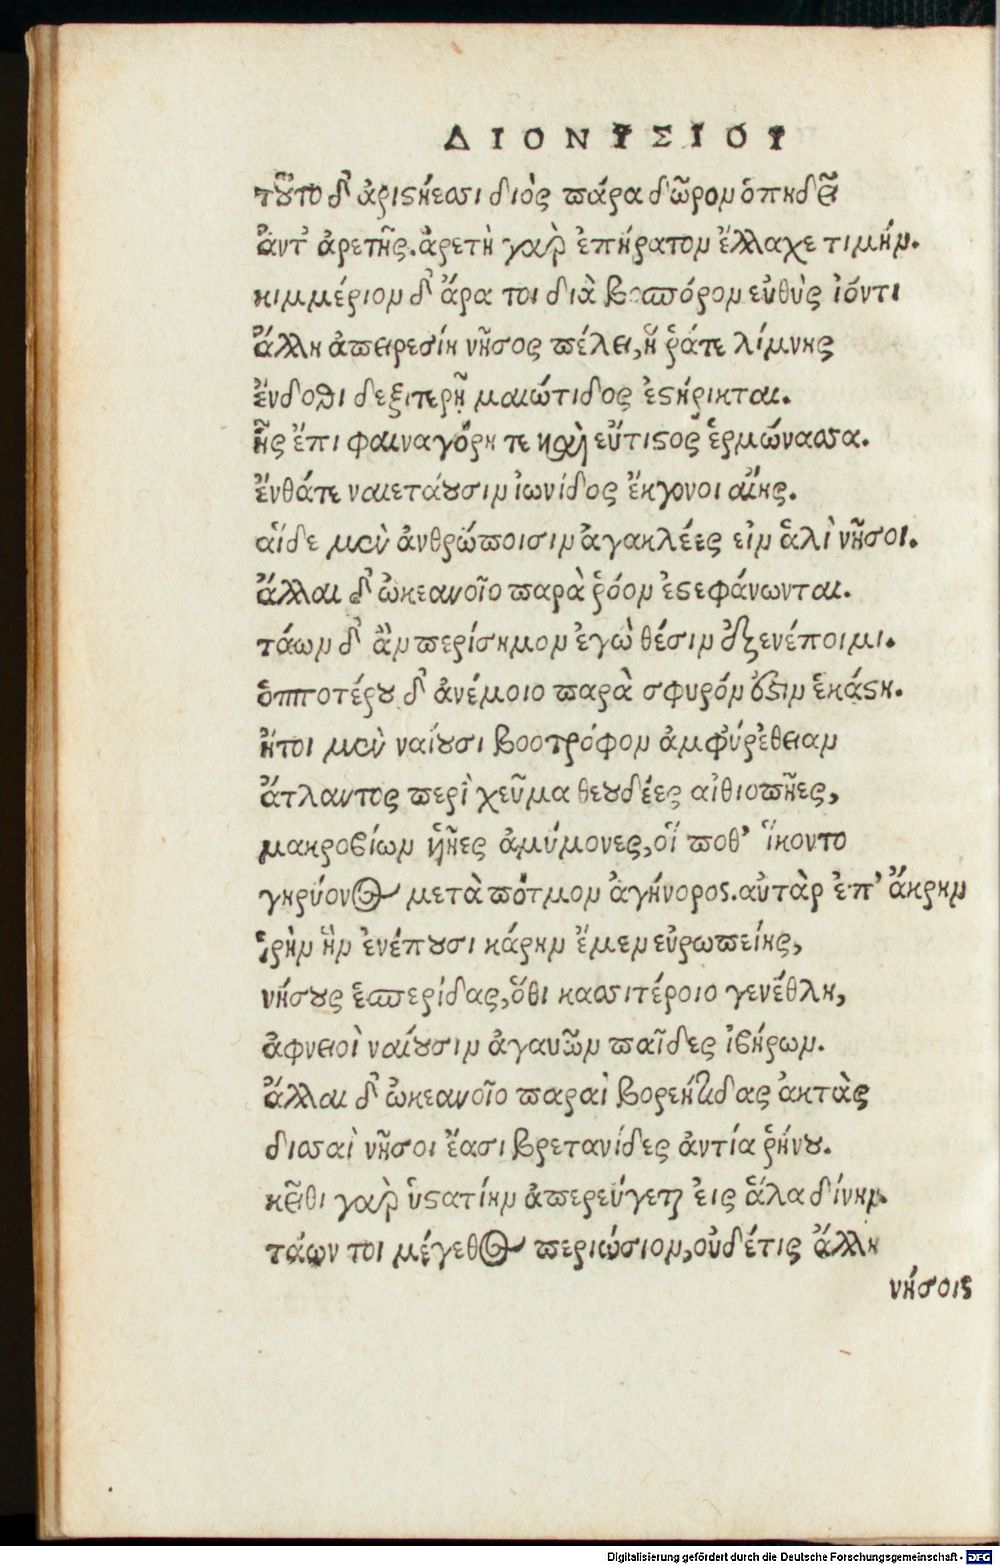 ΔΙΟΝΥΣΙΟΥ
τοῦτο δ' ἀριστήεσσι διὸς πάρα δῶρον ὀπηδεῖ
ἀντ' ἀρετῆς. ἀρετὴ γαρ ἐπήρατον ἔλλαχε τιμήν.
κιμμέριον δ' ἄρα τοι διὰ βοσπόρον εὐθὺς ἰόντι
ἄλλη ἀπειρεσίη νῆσος πέλει, ἥ ῥά τε λίμνης
ἔνδοθι δεξιτερῇ μαιώτιδος ἐστήρικται.
ἧς ἔπι φαιναγόρη τε καὶ εὔτιστος ἑρμώνασσα.
ἔνθάτε ναιετάουσιν ἰωνίδος ἔκγονοι αἴης.
αἵδε μὲν ἀνθρώποισιν ἀγακλέες εἰν ἁλὶ νῆσοι.
ἄλλαι δ' ὠκεανοῖο παρὰ ῥόον ἐστεφάνωνται.
τάων δ' ἂν περίσημον ἐγὼ θέσιν ἐξενέποιμι.
ὁπποτέρου δ' ἀνέμοιο παρὰ σφυρόν ἐστιν ἑκάστη.
ἤτοι μὲν ναίουσι βοοτρόφον ἀμφ' ὐρέθειαν
ἄτλαντος περὶ χεῦμα θεουδέες αἰθιοπῆες,
μακροβίων ἡῆες ἀμύμονες, οἵ ποθ' ἵκοντο
γηρύονος μετὰ πότμον ἀγήνορος. αὐτὰρ ἐπ' ἄκρην
ἱρὴν ἣν ἐνέπουσι κάρην ἔμεν εὐρωπείης,
νήσους ἑσπερίδας, ὅθι κασσιτέροιο γενέθλη,
ἀφνειοὶ ναίουσιν ἀγαυῶν παῖδες ἰβήρων.
ἄλλαι δ' ὠκεανοῖο παραὶ βορεήτιδας ἀκτὰς
δισσαὶ νῆσοι ἔασι βρετανίδες ἀντία ῥήνου.
κεῖθι γαρ ὑστατίην ἀπερεύγεται εἰς ἅλα δίνην.
τάων τοι μέγεθος περιώσιον, οὐδέ τις ἄλλη
νήσοις
Digitalisierung gefördert durch die Deutsche Forschungsgemeinschaft - DFG